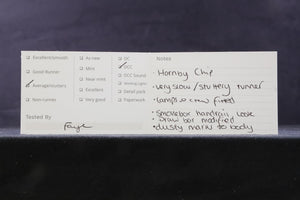 Excellent/smooth
Good Runner
Average/stutters
Non-runner
Tested By
Faye
As new
Mint
Near mint
Excellent
Very good
DC
DCC
DCC Sound
Working Lights
Detail pack
Paperwork
Notes
Hornby Chip
-very slow/stuttery runner
-lamps + crew fitted
-smokebox handrail loose
-draw bar modified
-dusty marks to body